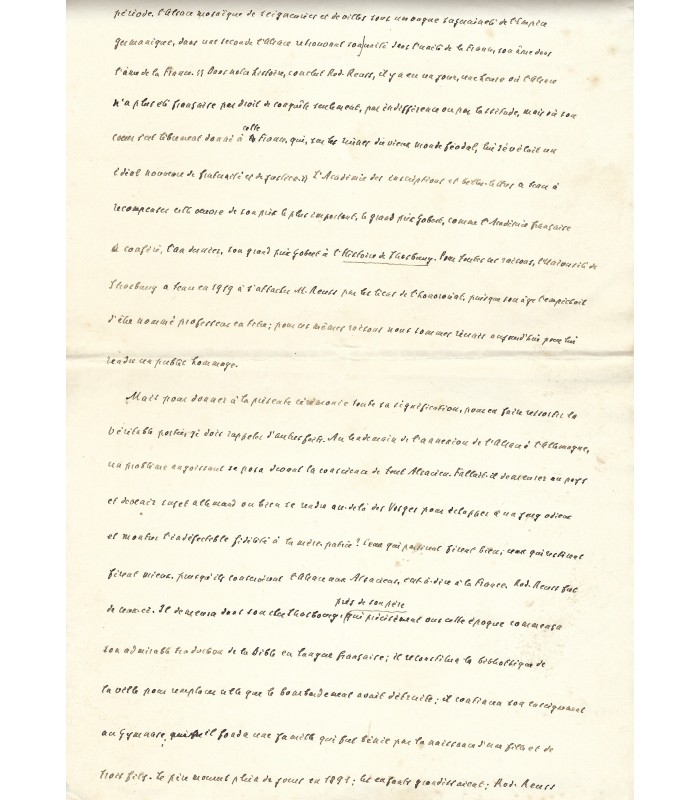 période, l'Alsace mosaïque de seigneuries et de villes sous un vague suzeraineté de l'Empire
germanique, dans une seconde l'Alsace retrouvant son unité dans l'unité de la France, son âme dans
l'âme de la France. « Dans notre histoire, conclut Rod. Reuss, il y a eu un jour, une heure où l'Alsace
n'a plus été française par droit de conquête seulement, par indifférence ou par lassitude, mais où son
coeur s'est librement donné à cette France, qui, sur les ruines du vieux monde féodal, lui révélait un
idéal nouveau de fraternité et de justice. » L'Académie des inscriptions et belles-lettres a tenu à
récompenser cette oeuvre de son prix le plus important, le grand prix Gobert, comme l'Académie française
a conféré, l'an dernier, son grand prix Gobert à l'Histoire de Strasbourg. Pour toutes ces raisons, l'Université de
Strasbourg a tenu en 1919 à s'attacher M. Reuss par les liens de l'honorariat, puisque son âge l'empêchait
d'être nommé professeur en titre; pour ces mêmes raisons nous sommes réunis aujourd'hui pour lui
rendre un public hommage.
Mais pour donner à la présente cérémonie toute sa signification, pour en faire ressortir la
véritable portée, je dois rappeler d'autres faits. Au lendemain de l'annexion de l'Alsace à l'Allemagne,
un problème angoissant se posa devant la conscience de tout Alsacien. Fallait-il demeurer au pays
et devenir sujet allemand ou bien se rendre au-delà des Vosges pour échapper à un joug odieux
et montrer l'indéfectible fidélité à la mère-patrie? Ceux qui partirent firent bien; ceux qui restèrent
firent mieux, puisqu'ils conservèrent l'Alsace aux Alsaciens, c'est-à-dire à la France. Rod. Reuss fut
de ceux-ci. Il demeura dans son cher Strasbourg, près de son père qui précisément à cette époque commença
son admirable traduction de la Bible en langue française; il reconstitua la bibliothèque de
la ville pour remplacer celle que le bombardement avait détruite; il continua son enseignement
au Gymnase; il fonda une famille qui fut bénie par la naissance d'une fille et de
trois fils. Le père mourut plein de jours en 1891; les enfants grandissaient; Rod. Reuss